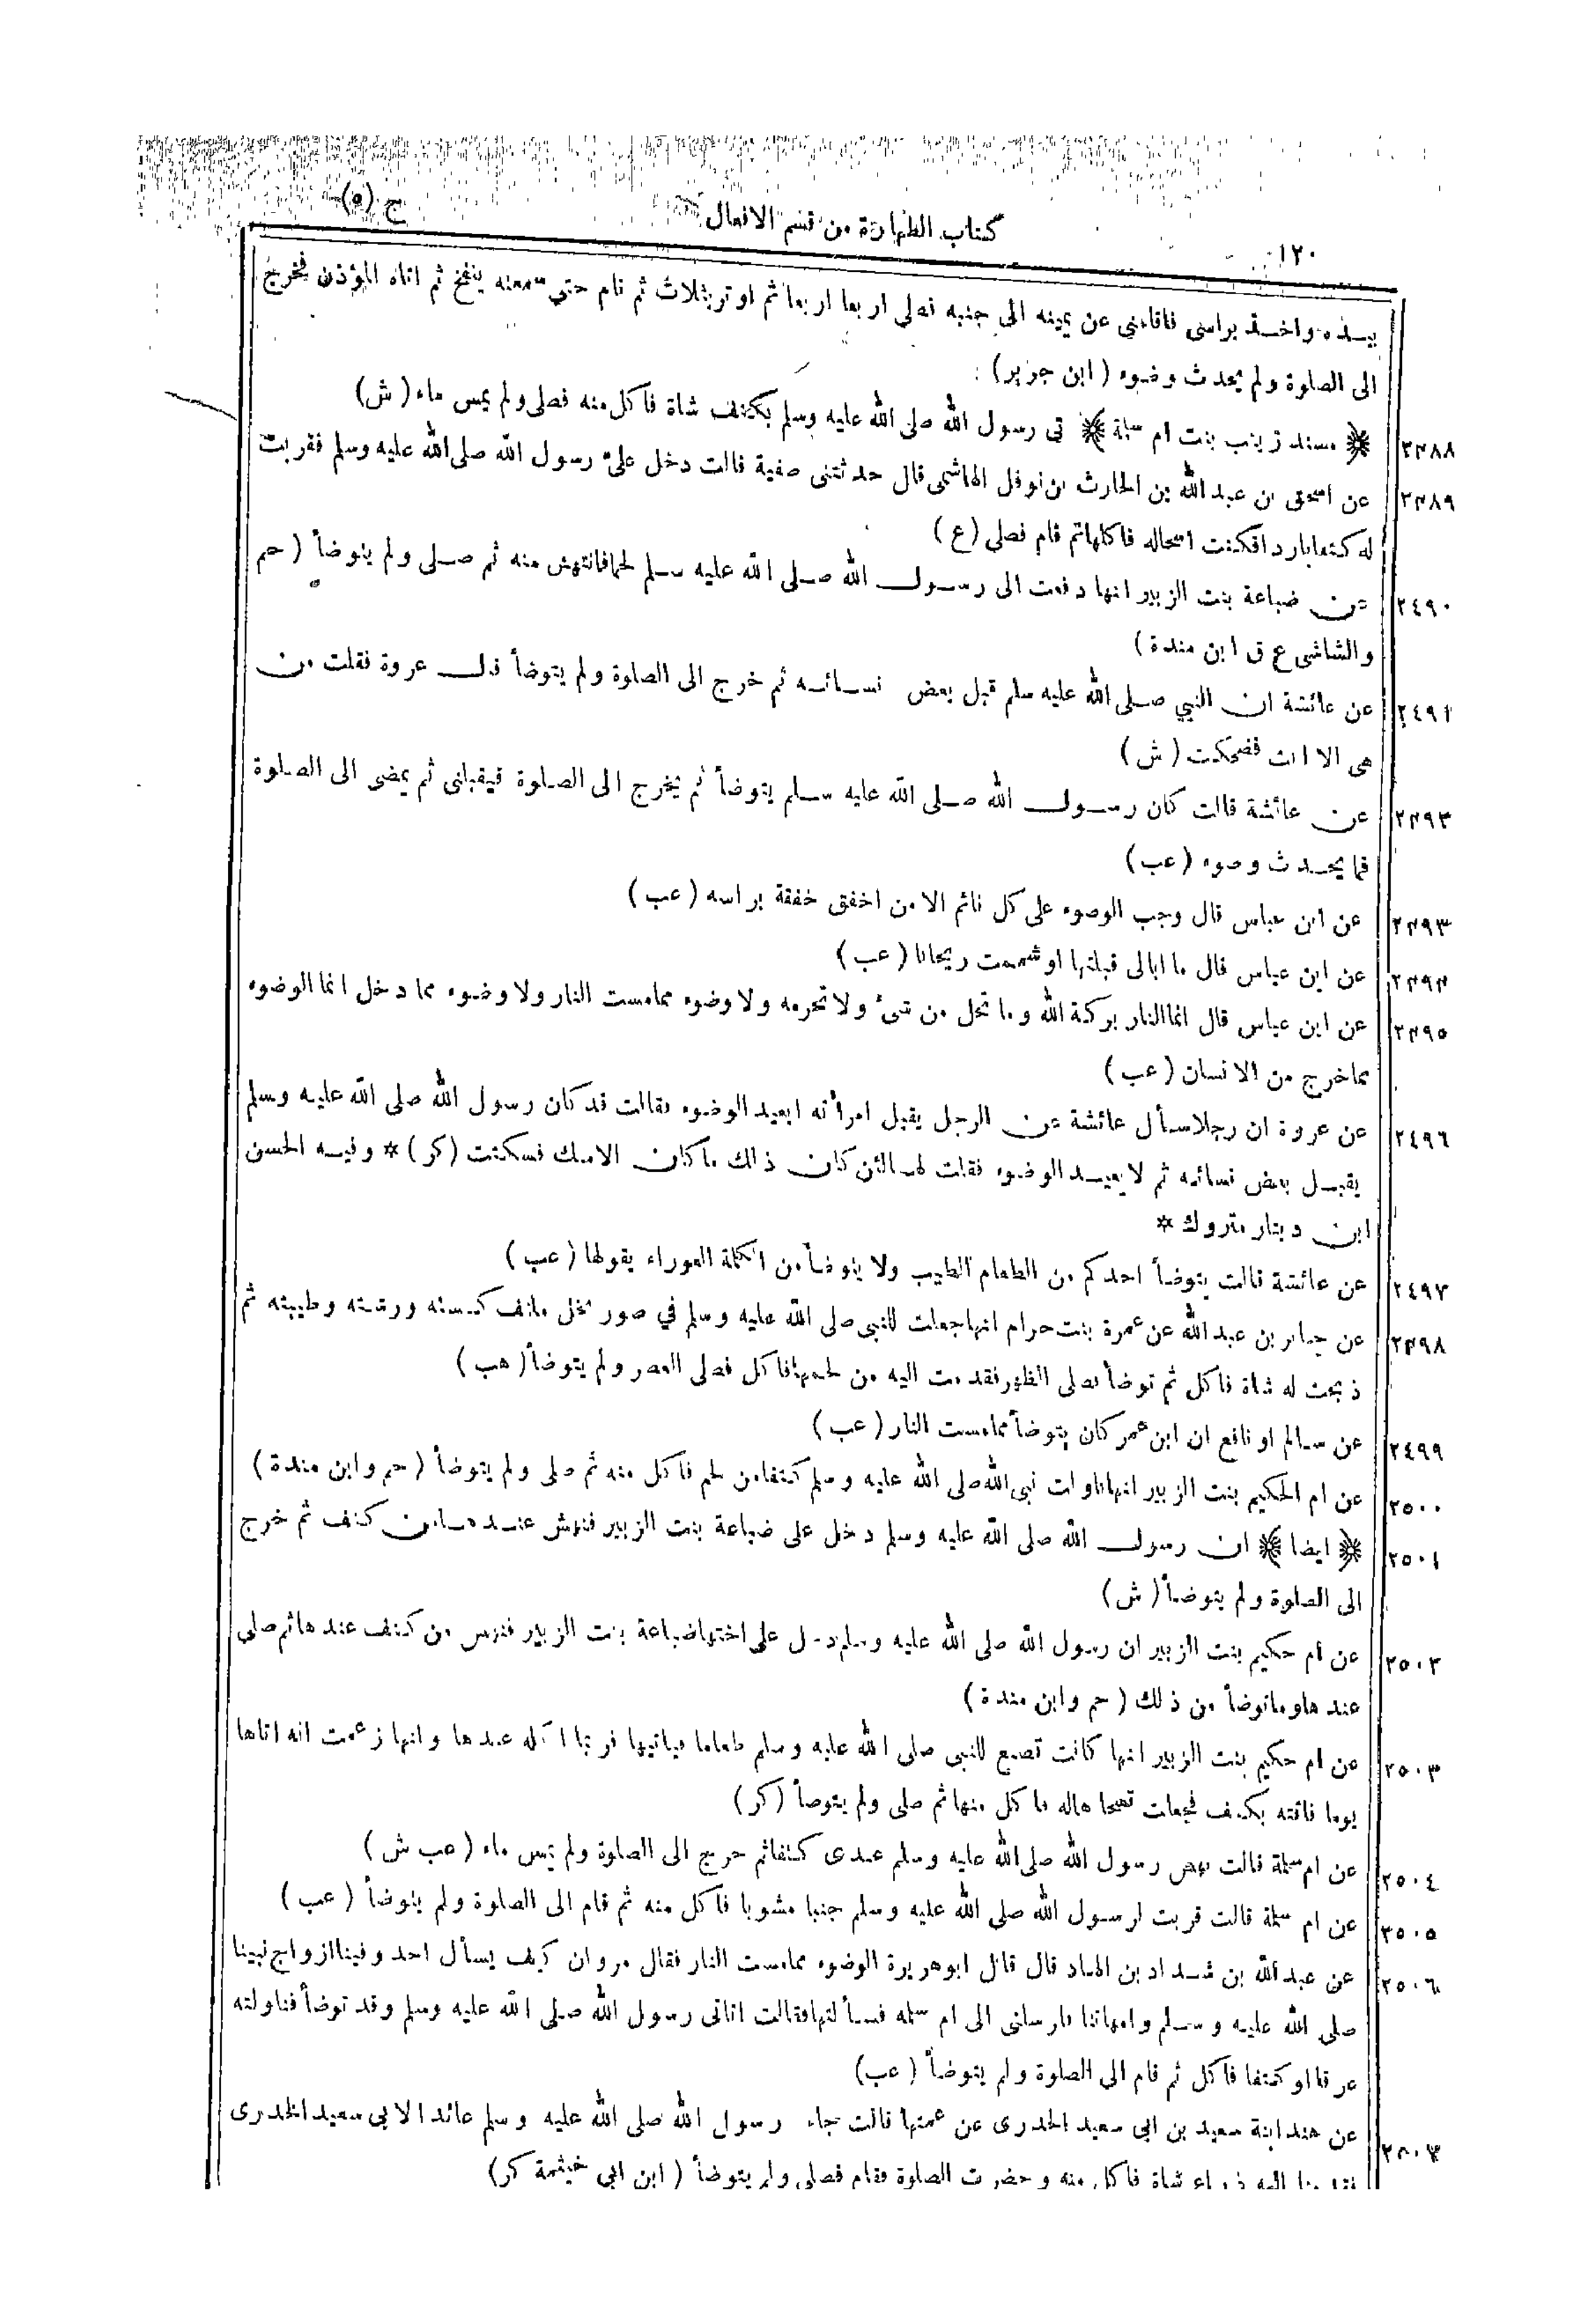 ج (٥)
كتاب الطهارة من قسم الافعال
١٢٠
بيده واخذ براسى فاقامنى عن يمينه الى جنبه فصلى اربعا اربعا ثم اوتر بثلاث ثم نام حتى سمعته ينفخ ثم اتاه المؤذن فخرج
الى الصلوة ولم يحدث وضوء (ابن جرير)
٢٤٨٨ مسند زينب بنت ام سلمة رسول الله صلى الله عليه وسلم بكتف شاة فاكل منه فصلى ولم يمس ماء (ش)
٢٤٨٩ عن اسحق بن عبد الله بن الحارث بن نوفل الهاشمى قال حدثتنى صفية قالت دخل علىّ رسول الله صلى الله عليه وسلم فقربت
له كتفا باردا فكنت اسحاله فاكلها ثم قام فصلى (ع)
٢٤٩٠ عن ضباعة بنت الزبير انها دفعت الى رسول الله صلى الله عليه سلم لحما فانتهش منه ثم صلى ولم يتوضأ (حم
والشاشى ع ق ابن مندة)
٢٤٩١ عن عائشة ان النبي صلى الله عليه سلم قبل بعض نسائه ثم خرج الى الصلوة ولم يتوضأ عروة فقلت من
هى الا انت فضحكت (ش)
٢٤٩٢ عن عائشة قالت كان رسول الله صلى الله عليه سلم يتوضأ ثم يخرج الى الصلوة فيقبلنى ثم يمضى الى الصلوة
فما يحدث وضوء (عب)
٢٤٩٣ عن ابن عباس قال وجب الوضوء على كل نائم الا من اخفق خفقة براسه (عب)
٢٤٩٤ عن ابن عباس قال ما ابالى قبلتها او شممت ريحانا (عب)
٢٤٩٥ عن ابن عباس قال انما النار بركة الله وما تحل من شىء ولا تحرمه ولا وضوء مما مست النار ولا وضوء مما دخل انما الوضوء
مما خرج من الانسان (عب)
٢٤٩٦ عن عروة ان رجلا سأل عائشة عن الرجل يقبل امرأته ايعيد الوضوء فقالت قد كان رسول الله صلى الله عليه وسلم
يقبل بعض نسائه ثم لا يعيد الوضوء فقلت لها لئن كان ذلك ما كان الا منك فسكتت (كر) * وفيه الحسن
ابن دينار متروك *
٢٤٩٧ عن عائشة قالت يتوضأ احدكم من الطعام الطيب ولا يتوضأ من الكلمة العوراء يقولها (عب)
٢٤٩٨ عن جابر بن عبد الله عن عمرة بنت حرام انها جعلت للنبى صلى الله عليه وسلم في صور نخل كنسته ورشته وطيبته ثم
ذبحت له شاة فاكل ثم توضأ فصلى الظهر فقدمت اليه من لحمها فاكل فصلى العصر ولم يتوضأ (هب)
٢٤٩٩ عن سالم او نافع ان ابن عمر كان يتوضأ مما مست النار (عب)
٢٥٠٠ عن ام الحكيم بنت الزبير انها ناولت نبى الله صلى الله عليه وسلم كتفا من لحم فاكل منه ثم صلى ولم يتوضأ (حم وابن مندة)
٢٥٠١ ايضا ان رسول الله صلى الله عليه وسلم دخل على ضباعة بنت الزبير فنهش عندها من كتف ثم خرج
الى الصلوة ولم يتوضأ (ش)
٢٥٠٢ عن ام حكيم بنت الزبير ان رسول الله صلى الله عليه وسلم دخل على اختها ضباعة بنت الزبير فنهس من كتف عندها ثم صلى
عندها وما توضأ من ذلك (حم وابن مندة)
٢٥٠٣ عن ام حكيم بنت الزبير انها كانت تصنع للنبى صلى الله عليه وسلم طعاما فياتيها فربما اكله عندها وانها زعمت انه اتاها
يوما فاتته بكتف فجعلت تسحاها له فاكل منها ثم صلى ولم يتوضأ (كر)
٢٥٠٤ عن ام سلمة قالت نهس رسول الله صلى الله عليه وسلم عندى كتفا ثم خرج الى الصلوة ولم يمس ماء (عب ش)
٢٥٠٥ عن ام سلمة قالت قربت لرسول الله صلى الله عليه وسلم جنبا مشويا فاكل منه ثم قام الى الصلوة ولم يتوضأ (عب)
٢٥٠٦ عن عبد الله بن شداد بن الهاد قال قال ابو هريرة الوضوء مما مست النار فقال مروان كيف يسأل احد وفينا ازواج نبينا
صلى الله عليه وسلم وامهاتنا فارسلنى الى ام سلمه فسألتها فقالت اتانى رسول الله صلى الله عليه وسلم وقد توضأ فناولته
عرقا او كتفا فاكل ثم قام الى الصلوة ولم يتوضأ (عب)
٢٥٠٧ عن هند ابنة سعيد بن ابى سعيد الخدرى عن عمتها قالت جاء رسول الله صلى الله عليه وسلم عائدا لابى سعيد الخدرى
فقدمنا اليه ذراع شاة فاكل منه وحضرت الصلوة فقام فصلى ولم يتوضأ (ابن ابى خيثمة كر)